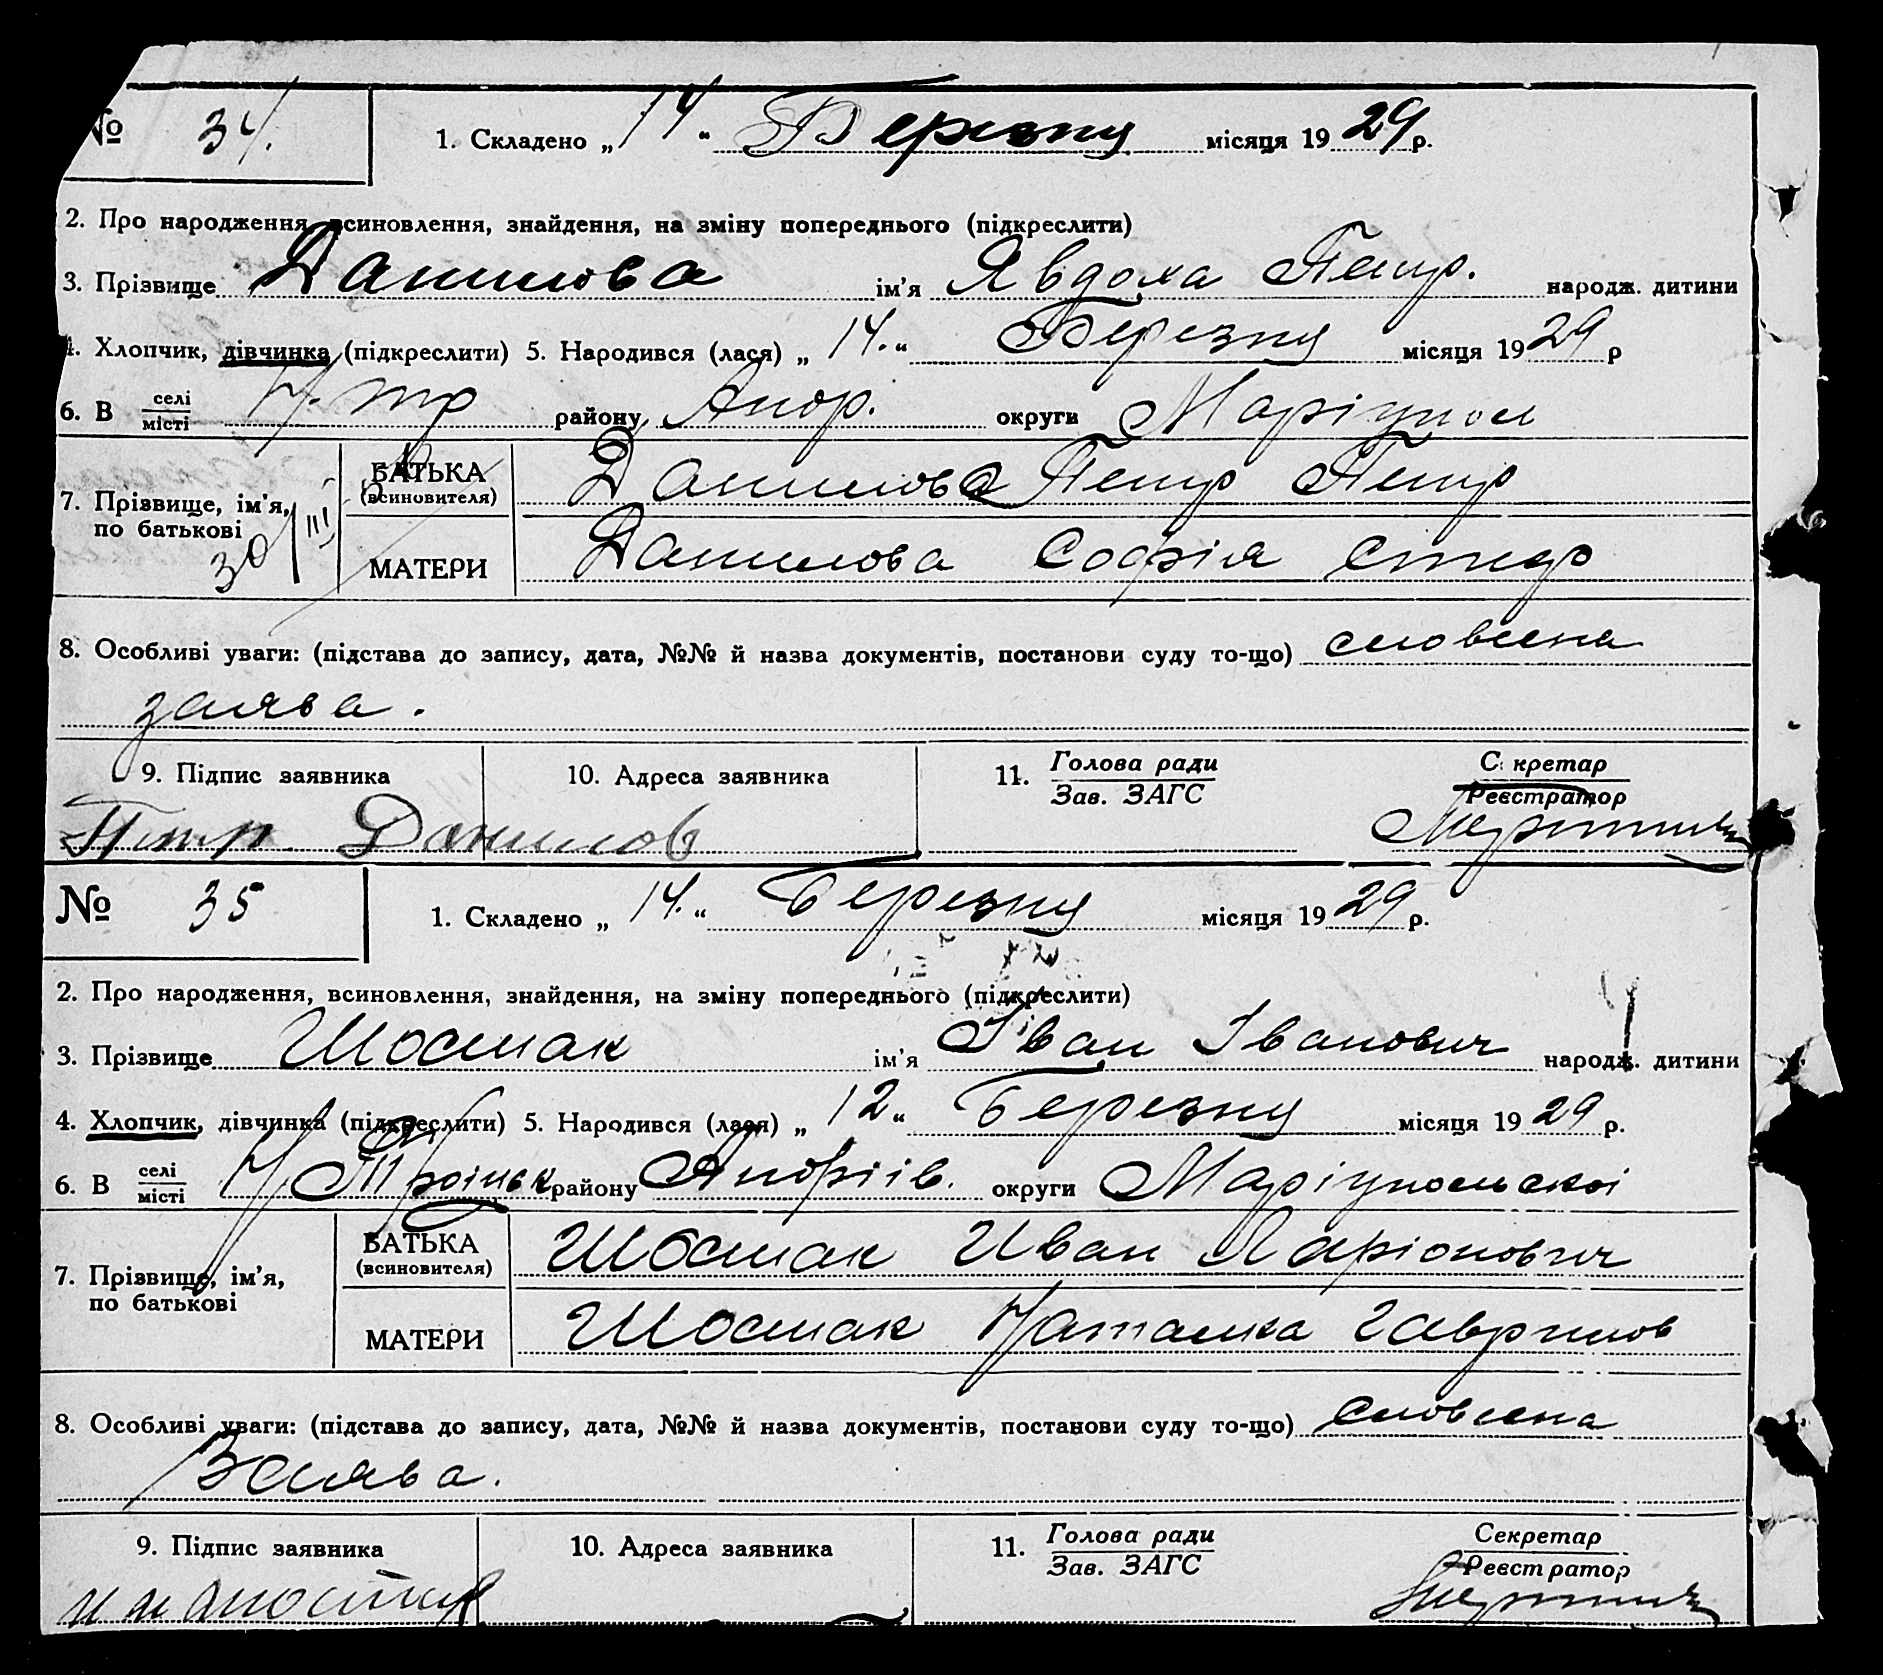 № 34. 1. Складено „ 14 " Березня місяця 1929 р.
2. Про народження, всиновлення, знайдення, на зміну попереднього (підкреслити)
3. Прізвище Данилова ім'я Явдоха Петр. народж. дитини
4. Хлопчик, дівчинка (підкреслити) 5. Народився (лася) „ 14. " Березня місяця 1929 р
6. В селі місті Н. тр району округи Маріупол
7. Прізвище, ім'я, по батькові
30/III
БАТЬКА (всиновителя) Данилов Петр Петр
МАТЕРИ Данилова Софія
8. Особливі уваги: (підстава до запису, дата, №№ й назва документів, постанови суду то-що) словесна
заява.
9. Підпис заявника 10. Адреса заявника 11. Голова ради Зав. ЗАГС Секретар Реєстратор
Петр Данилов
№ 35 1. Складено „ 14. " Березня місяця 1929 р.
2. Про народження, всиновлення, знайдення, на зміну попереднього (підкреслити)
3. Прізвище Шостак ім'я Іван Іванович народж. дитини
4. Хлопчик, дівчинка (підкреслити) 5. Народився (лася) „ 12 " Березня місяця 1929 р.
6. В селі місті Н Троїцьк району округи Маріупольскої
7. Прізвище, ім'я, по батькові
БАТЬКА (всиновителя) Шостак Иван Ларіонович
МАТЕРИ Шостак Наталка Гаврилов
8. Особливі уваги: (підстава до запису, дата, №№ й назва документів, постанови суду то-що) словесна
Заява.
9. Підпис заявника 10. Адреса заявника 11. Голова ради Зав. ЗАГС Секретар Реєстратор